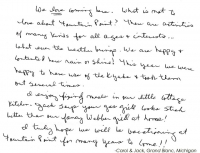 We love coming here. What is not to
love about Mountain Point? There are activities
of many kinds for all ages & interests...
what ever the weather brings. We are happy &
contented here rain or shine! This year we were
happy to have use of the Kayaks & took them
out several times.
I enjoy fixing meals in our little cottage
kitchen. Jack says your gas grill cooks steak
better than our fancy Webber grill at home!
I truly hope we will be vacationing at
Mountain Point for many years to come!!
Carol & Jack, Grand Blanc, Michigan